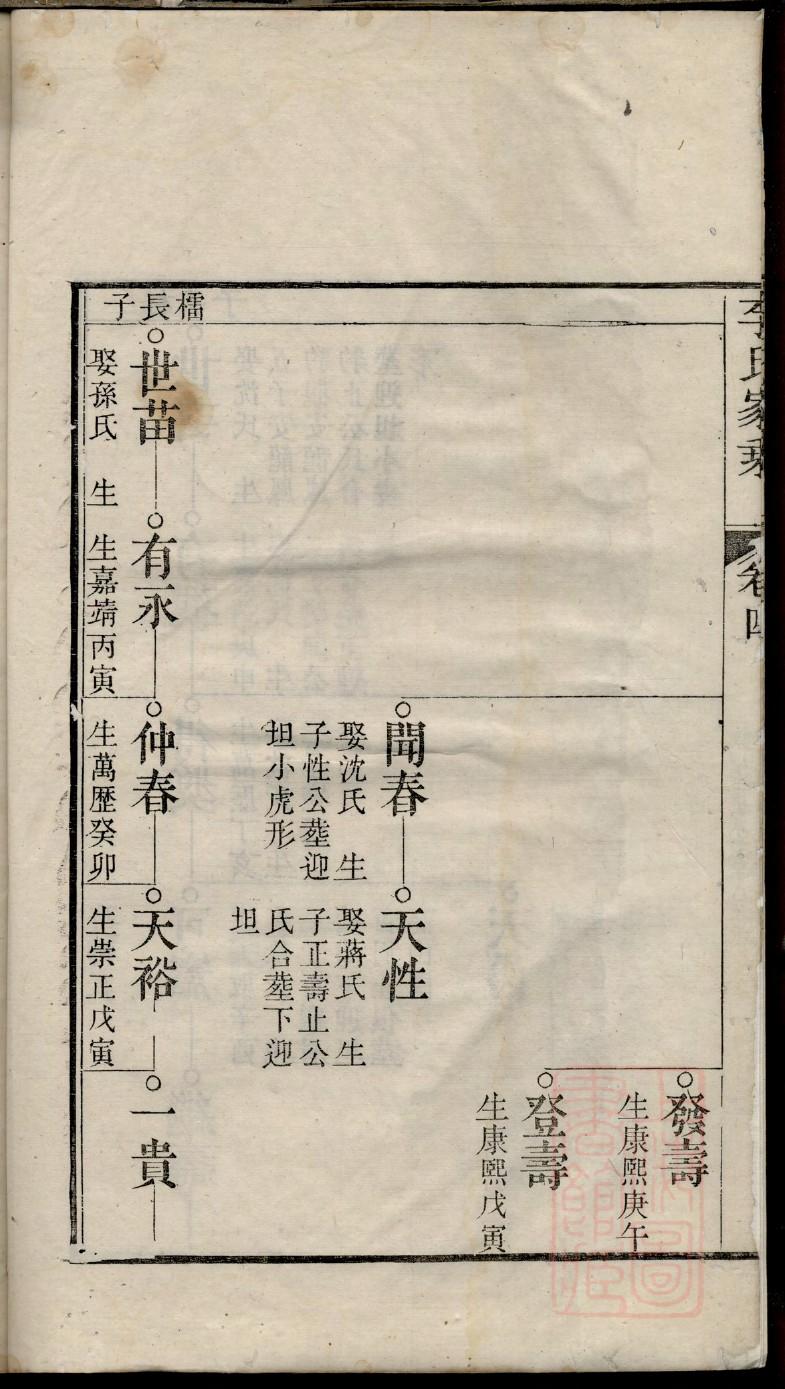 李氏家乘
卷四
發壽
生康熙庚午
登壽
生康熙戊寅
聞春
娶沈氏 生
子性公塟迎
坦小虎形
天性
娶蔣氏 生
子正壽止公
氏合塟下迎
坦
檽長子
世苗
娶孫氏 生
有永
生嘉靖丙寅
仲春
生萬歷癸卯
天裕
生崇正戊寅
一貴